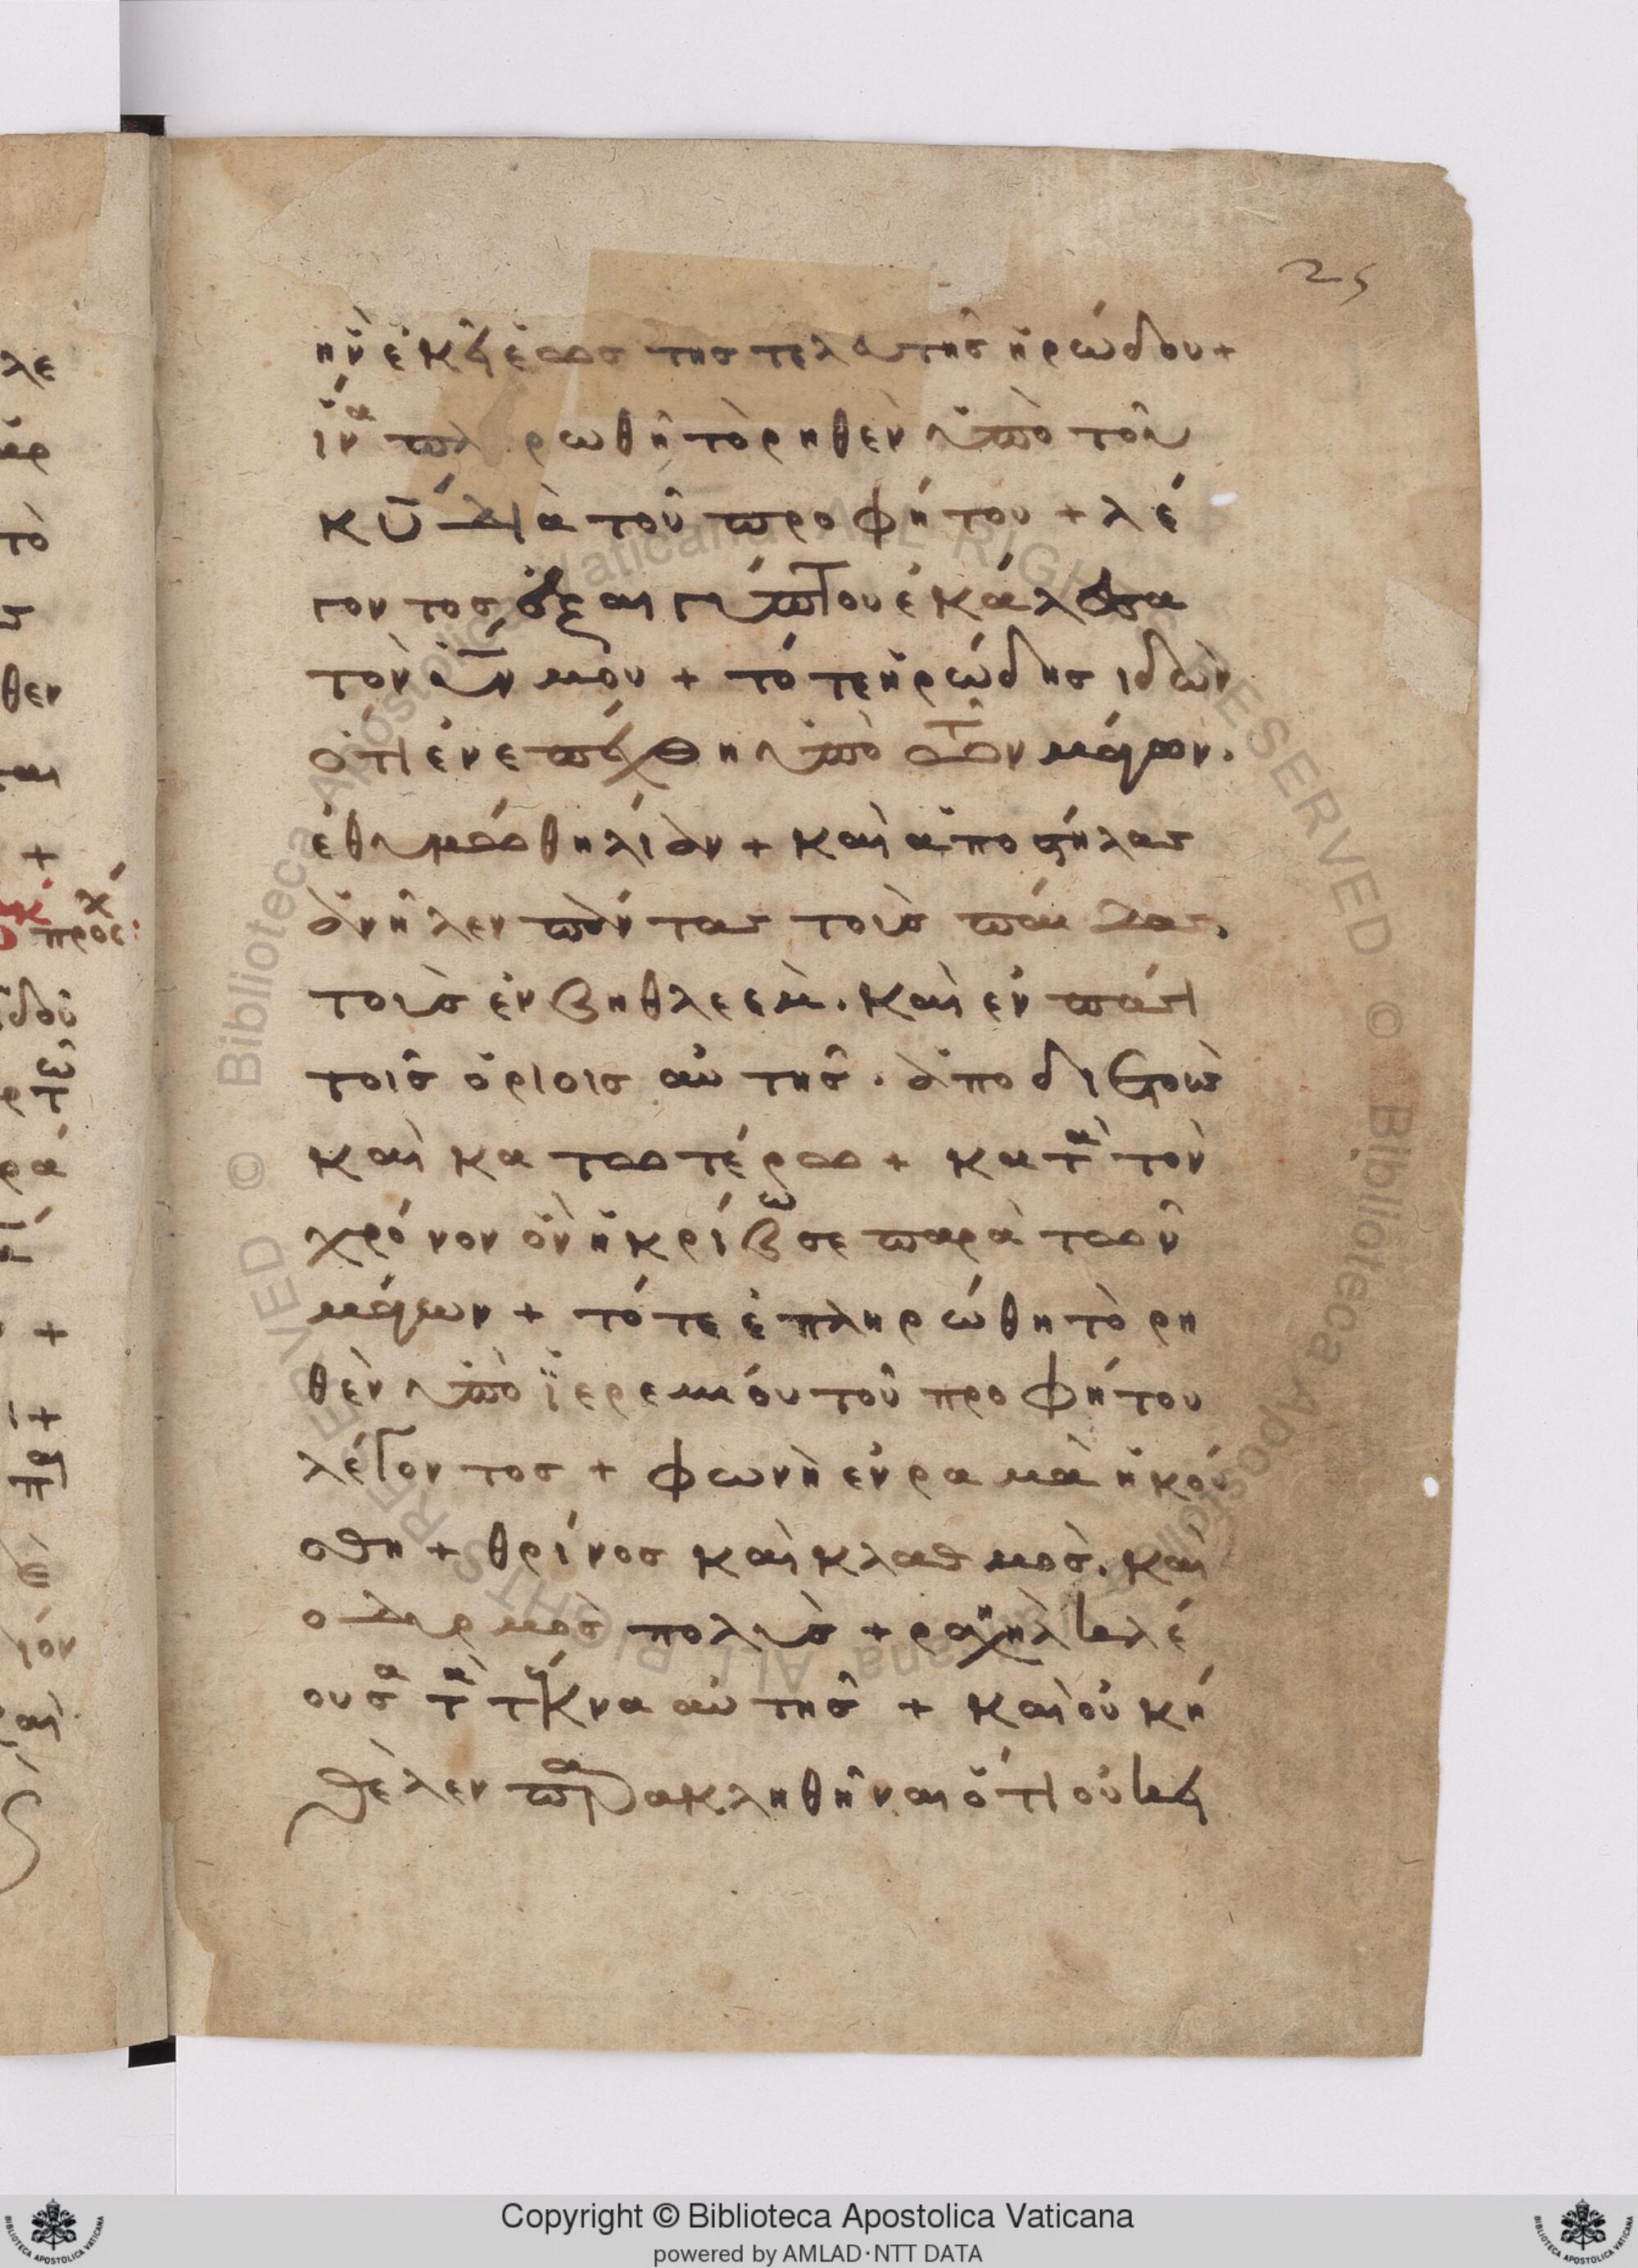 25
ἦν ἐκεῖ ἕως της τελευτης ἡρώδου +
ἵνα πληρωθῆ τὸ ρηθὲν ὑπὸ τοῦ
κῡ διὰ τοῦ προφήτου + λέ
γοντος ἐξ αιγύπτου ἐκάλεσα
τὸν ῡν μου + τότε ἡρώδης ιδὼν
ὅτι ἐνεπέχθη ὑπὸ τῶν μάγων.
ἐθυμώθη λίαν + καὶ ἀποστήλας
ἀνῆλεν πάντας τοὺς παίδας.
τοὺς ἐν βηθλεεμ. καὶ ἐν πάσι
τοῖς ὁρίοις αὐτῆς. ἀπο διετοὺς
καὶ κατωτέρω + κατὰ τὸν
χρόνον ὃν ἠκρίβωσε παρὰ τῶν
μάγων + τότε ἐπληρώθη τὸ ρη
θὲν ὑπὸ ϊερεμίου τοῦ προφήτου
λέγοντος + φωνὴ ἐν ραμὰ ἠκού
σθη + θρίνος καὶ κλαθμὸς. καὶ
οδυρμὸς πολὺς + ραχηλ κλέ
ουσα τὰ τέκνα αὐτῆς + καὶ οὐκ ή
θελεν παρακληθῆναι ὅτι οὐκ εἰ
λε
ὰρ
τὸ
ς
θεν
ται
+
πρός:
ϊδοῦ
ρά
+
+
ϊόν
Copyright © Biblioteca Apostolica Vaticana
powered by AMLAD·NTT DATA
© Biblioteca Apostolica Vaticana ALL RIGHTS RESERVED © Biblioteca Apostolica Vaticana ALL RIGHTS RESERVED
BIBLIOTECA APOSTOLICA VATICANA
BIBLIOTECA APOSTOLICA VATICANA